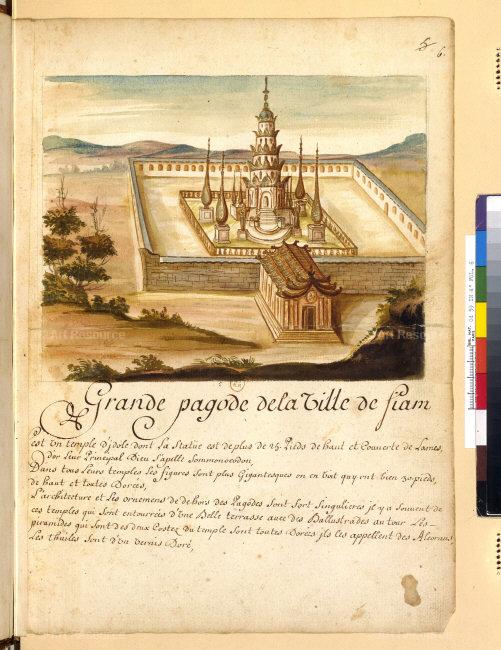 5. 6.
Grande pagode de la Ville de siam
est Un temple d'jdole dont la Statue est de plus de 25 Pieds de haut et Couverte de Lames,
d'or Leur Principal Dieu S'apelle Sommonocodon
Dans tous Leurs temples Les figures Sont plus Gigantesques on en Voit qui ont bien 30 pieds,
de haut et toutes Dorées,
L'architecture et Les ornemens de dehors des Pagodes Sont fort Singulieres jl y a Souvent de
ces temples qui Sont entourrées d'Une Belle terrasse avec des Ballustrades au tour Les
piramides qui Sont des deux Costez du temple Sont toutes Dorées jls les appellent des Alcorans
Les thuiles Sont d'Un Vernis Doré,